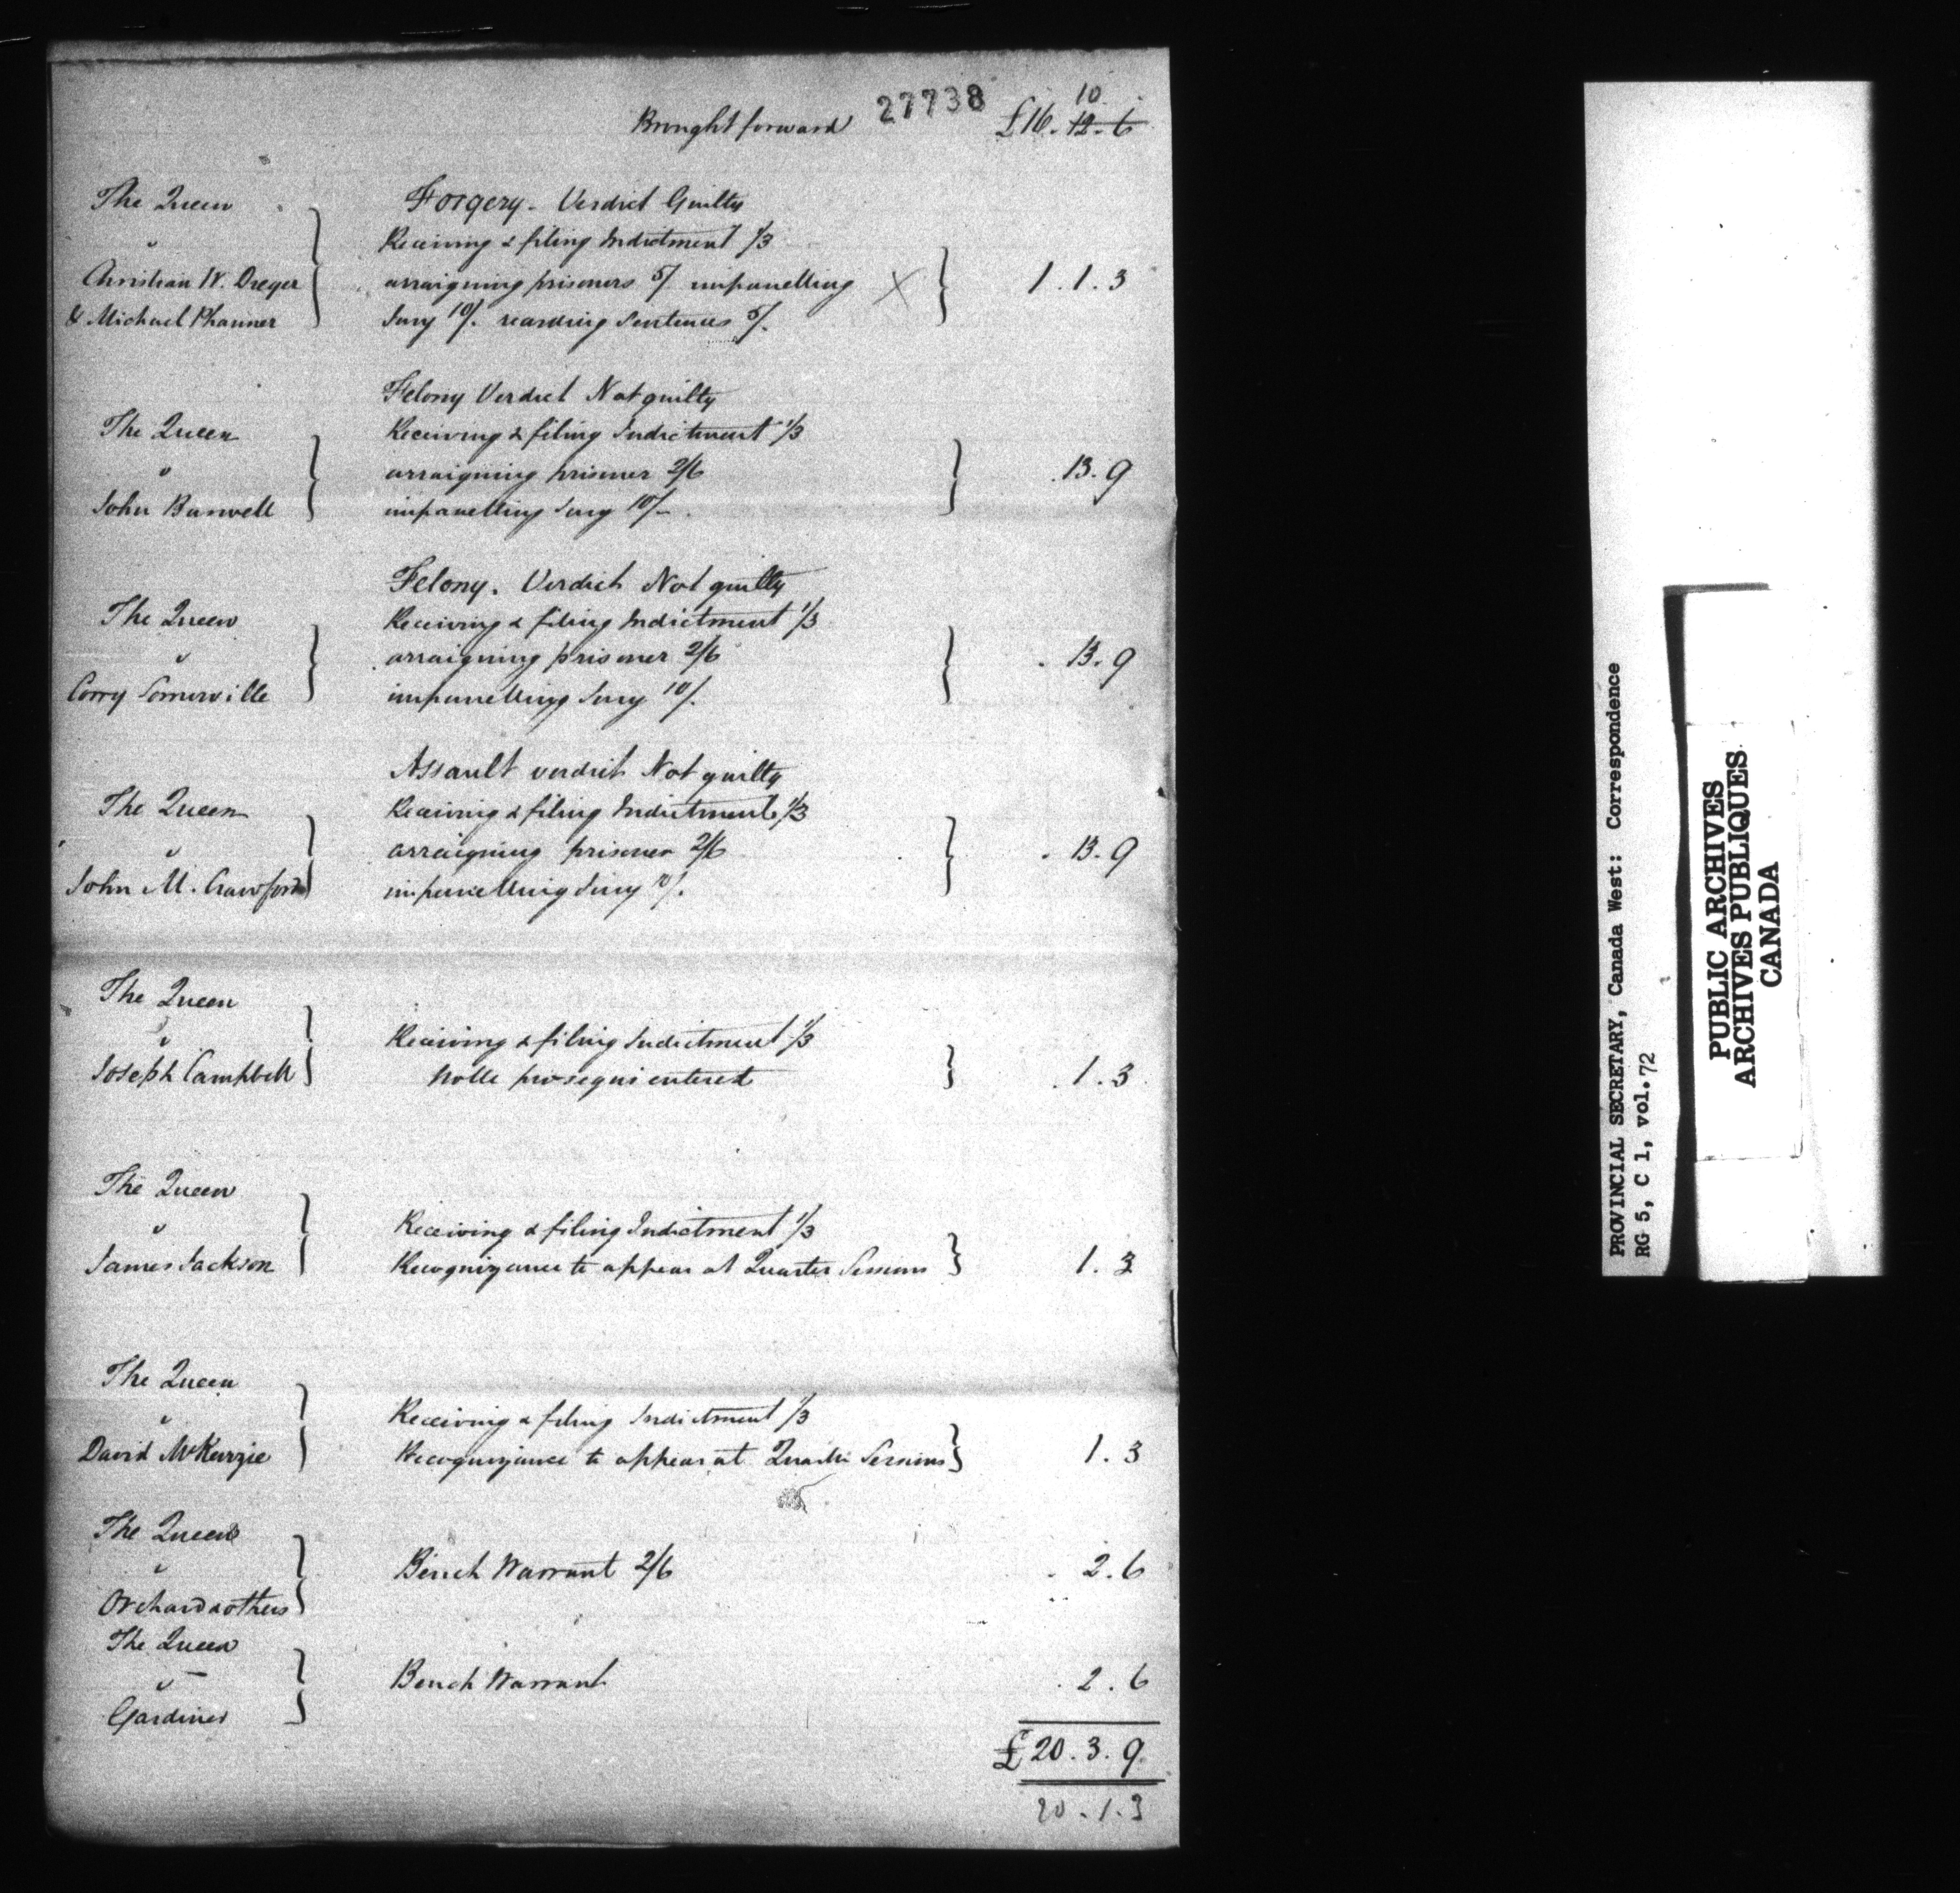 27738
10
Brought forward £16. 12. 6
The Queen Forgery. Verdict Guilty
" Receiving & filing Indictment 1/3
Christian W. Dreger arraigning prisoners 5/ impanelling X 1. 1. 3
& Michael Phanner Jury 10/. recording Sentences 5/.
Felony Verdict Not guilty
The Queen Receiving & filing Indictment 1/3
" arraigning prisoner 2/6 . 13. 9
John Burwell impanelling Jury 10/-
Felony. Verdict Not guilty
The Queen Receiving & filing Indictment 1/3
" arraigning prisoner 2/6 . 13. 9
Corry Somerville impanelling Jury 10/.
Assault verdict Not guilty
The Queen Receiving & filing Indictment 1/3
" arraigning prisoner 2/6 . 13. 9
John M. Crawford impanelling Jury 10/.
The Queen
" Receiving & filing Indictment 1/3
Joseph Campbell Nolle prosequi entered . 1. 3
The Queen
" Receiving & filing Indictment 1/3
James Jackson Recognizance to appear at Quarter Sessions 1. 3
The Queen
" Receiving & filing Indictment 1/3
David McKenzie Recognizance to appear at Quarter Sessions 1. 3
The Queen
" Bench Warrant 2/6 . 2. 6
Orchard & others
The Queen
" Bench Warrant . 2. 6
Gardiner
£20. 3. 9.
20. 1. 3
PROVINCIAL SECRETARY, Canada West: Correspondence
RG 5, C 1, vol. 72
PUBLIC ARCHIVES
ARCHIVES PUBLIQUES
CANADA